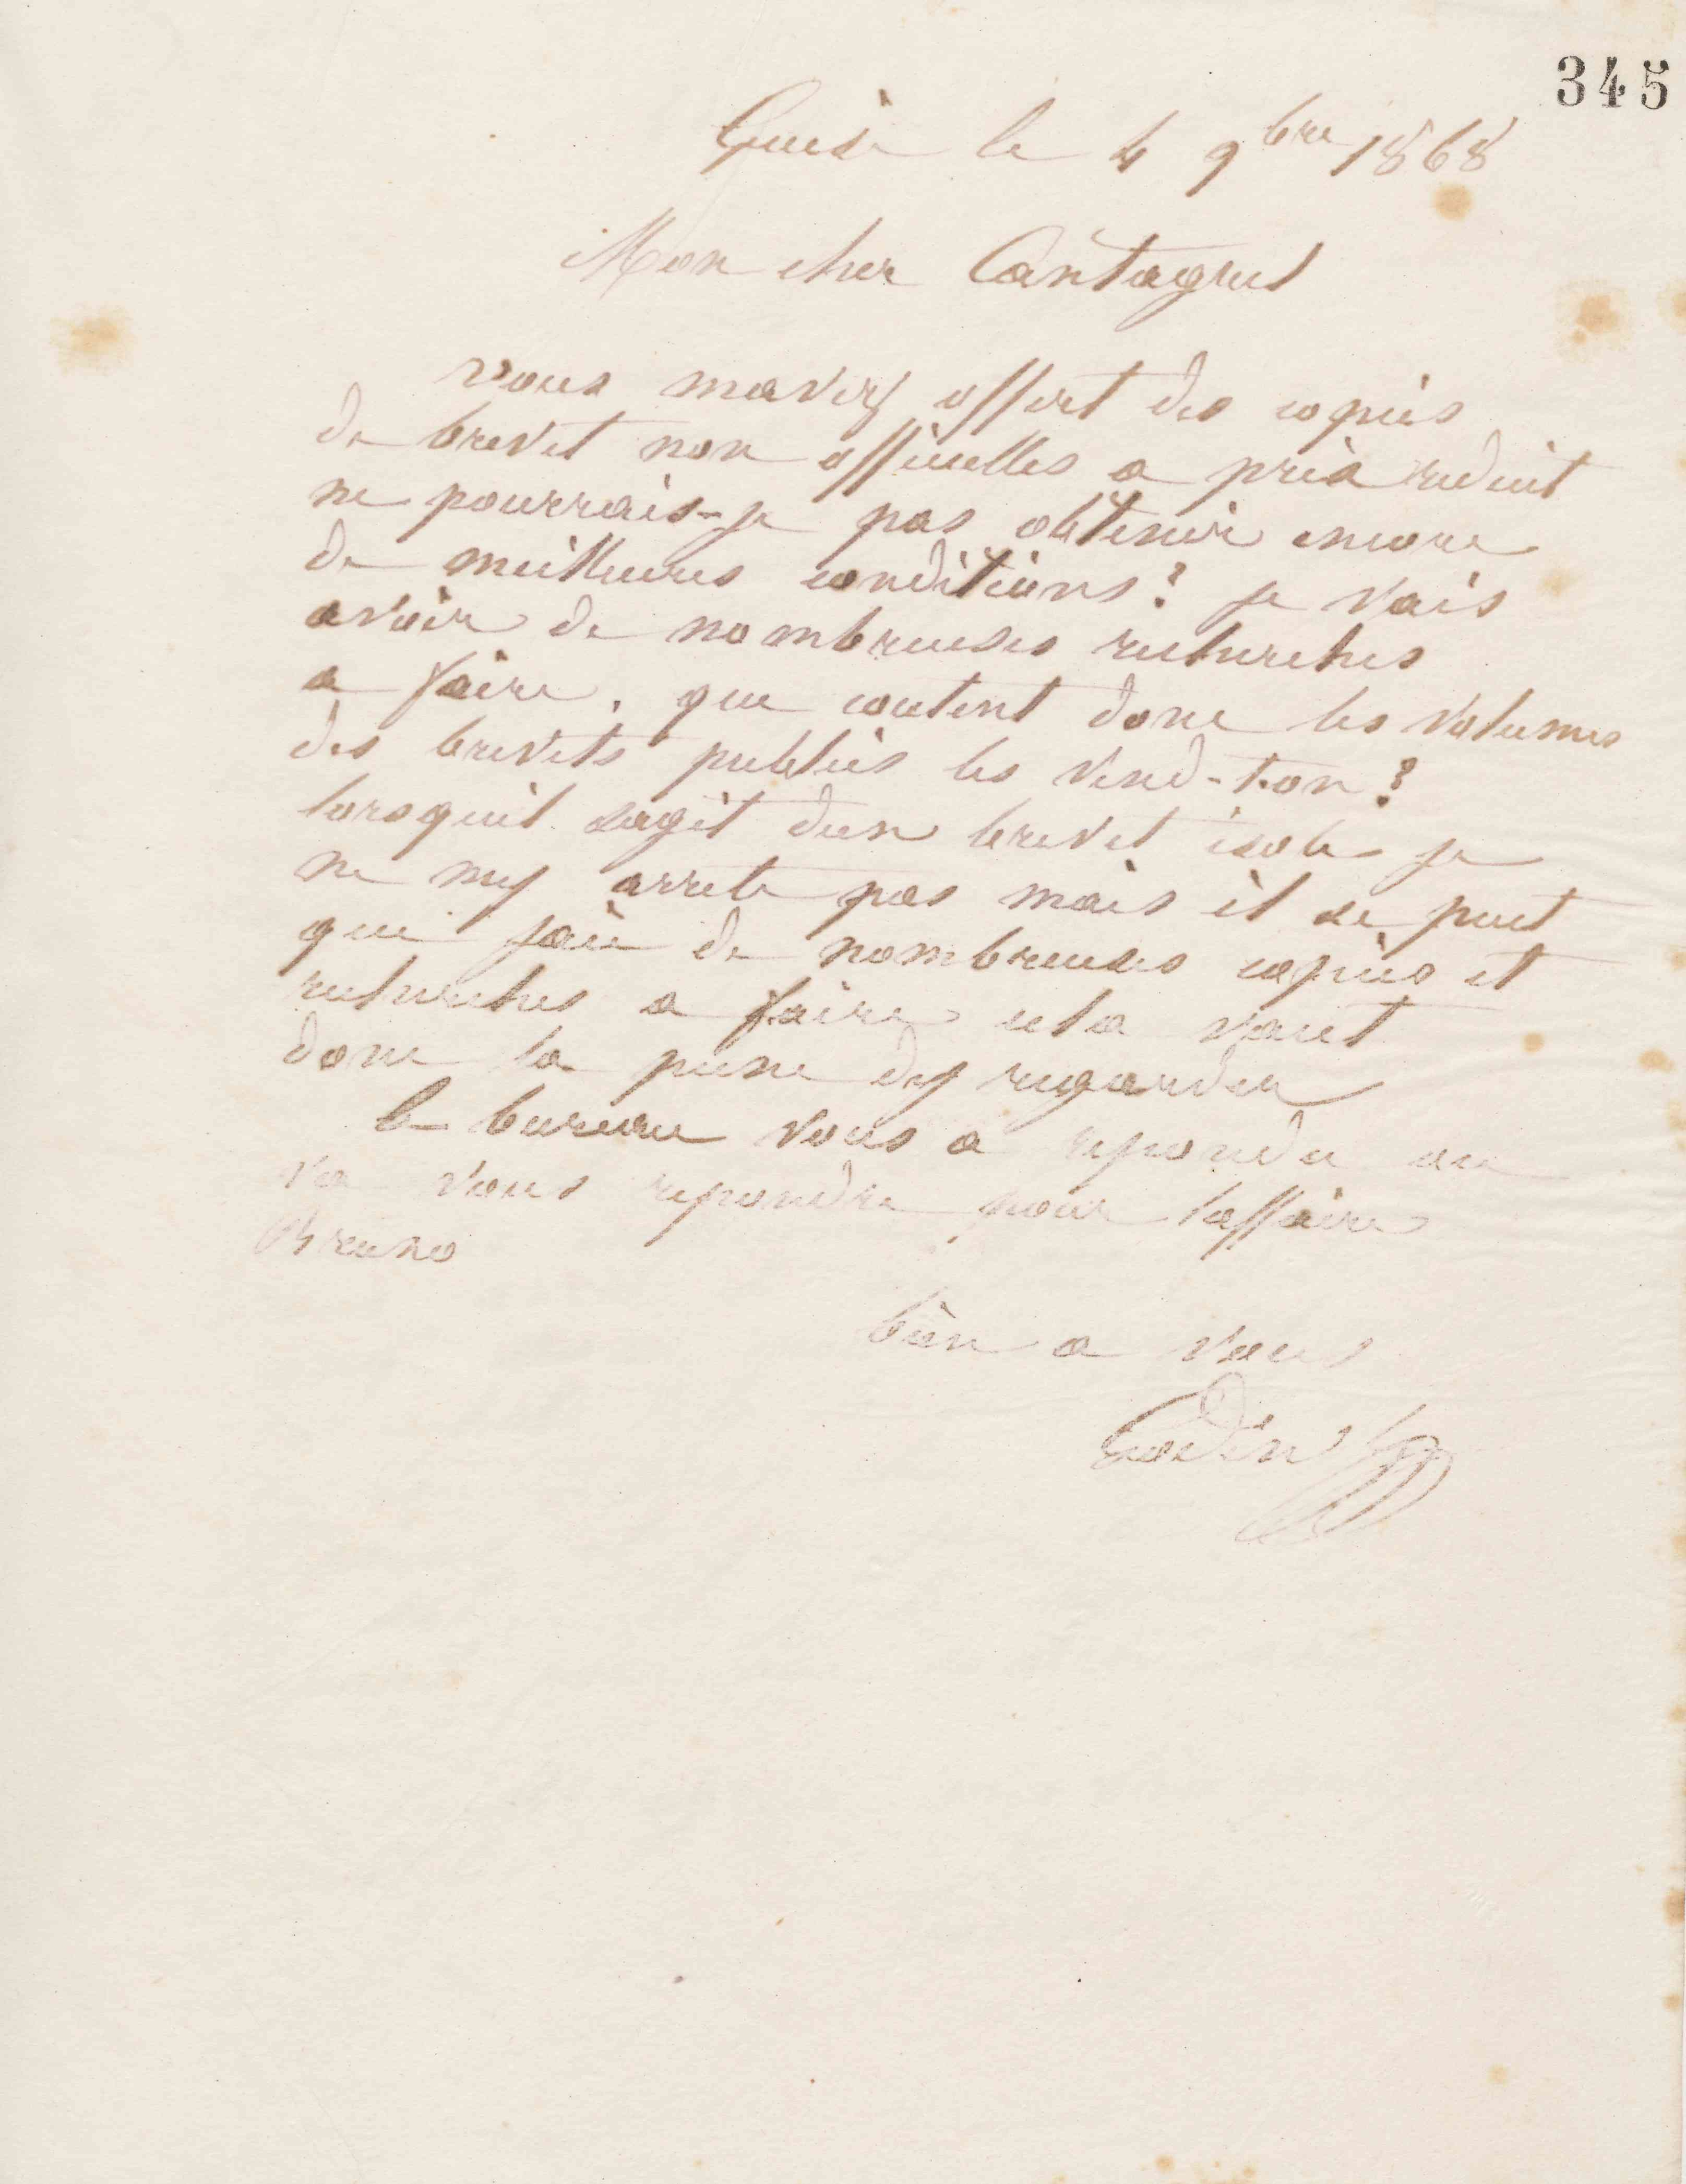 345
Guise le 4 9bre 1868
Mon cher Cantagrel
vous mavez offert des copies
de brevet non officielles a prix reduit
ne pourrais-je pas obtenir encore
de meilleures conditions ? je vais
avoir de nombreuses recherches
a faire. que coutent donc les volumes
des brevets publiés les vend-t-on ?
lorsquil sagit dun brevet isolé je
ne my arrete pas mais il se peut
que jaie de nombreuses copies et
recherches a faire cela vaut
donc la peine dy regarder
le bureau vous a repondu ou
va vous repondre pour laffaire
Bruno
bien a vous
Godin